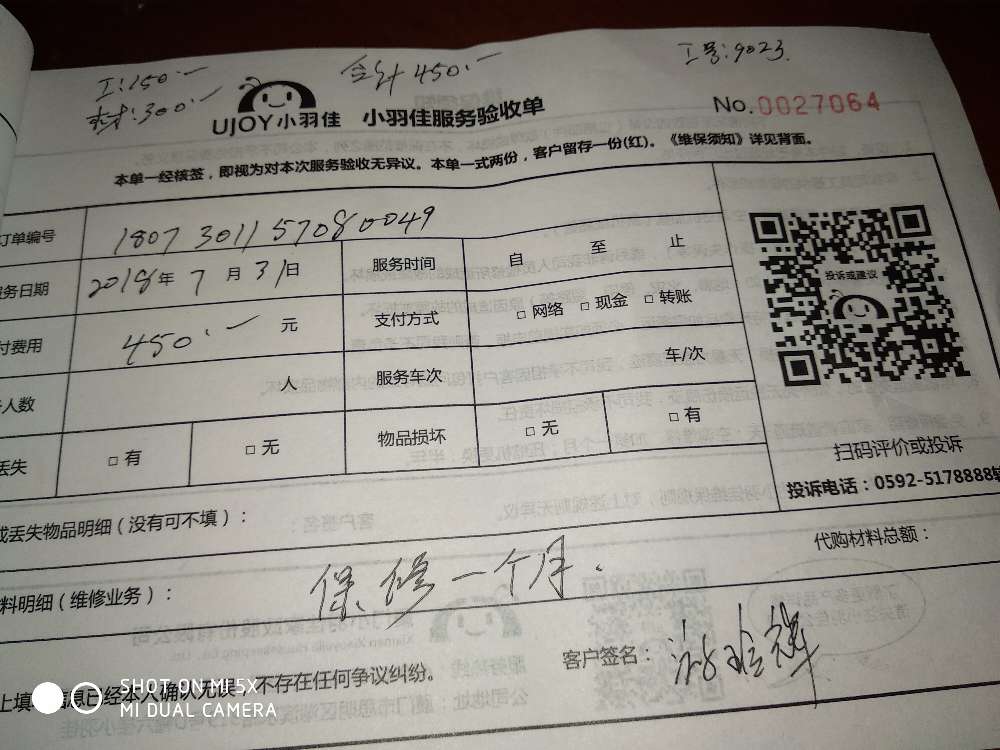 工:150.一
材:300.一
合计450.一
工号:9023.
UJOY小羽佳 小羽佳服务验收单
No.0027064
本单一经核签，即视为对本次服务验收无异议。本单一式两份，客户留存一份(红)。《维保须知》详见背面。
订单编号 1807301157080049
服务日期 2018年7月31日 服务时间 自 至 止
付费用 450.一 元 支付方式 □ 网络 □ 现金 □ 转账
人数 人 服务车次 车/次
丢失 □ 有 □ 无 物品损坏 □ 无 □ 有
投诉或建议
扫码评价或投诉
投诉电话：0592-5178888转
丢失物品明细（没有可不填）：
料明细（维修业务）： 保修一个月. 代购材料总额：
客户签名：
上填 信息已经本人确认无误，不存在任何争议纠纷。
SHOT ON MI 5X
MI DUAL CAMERA